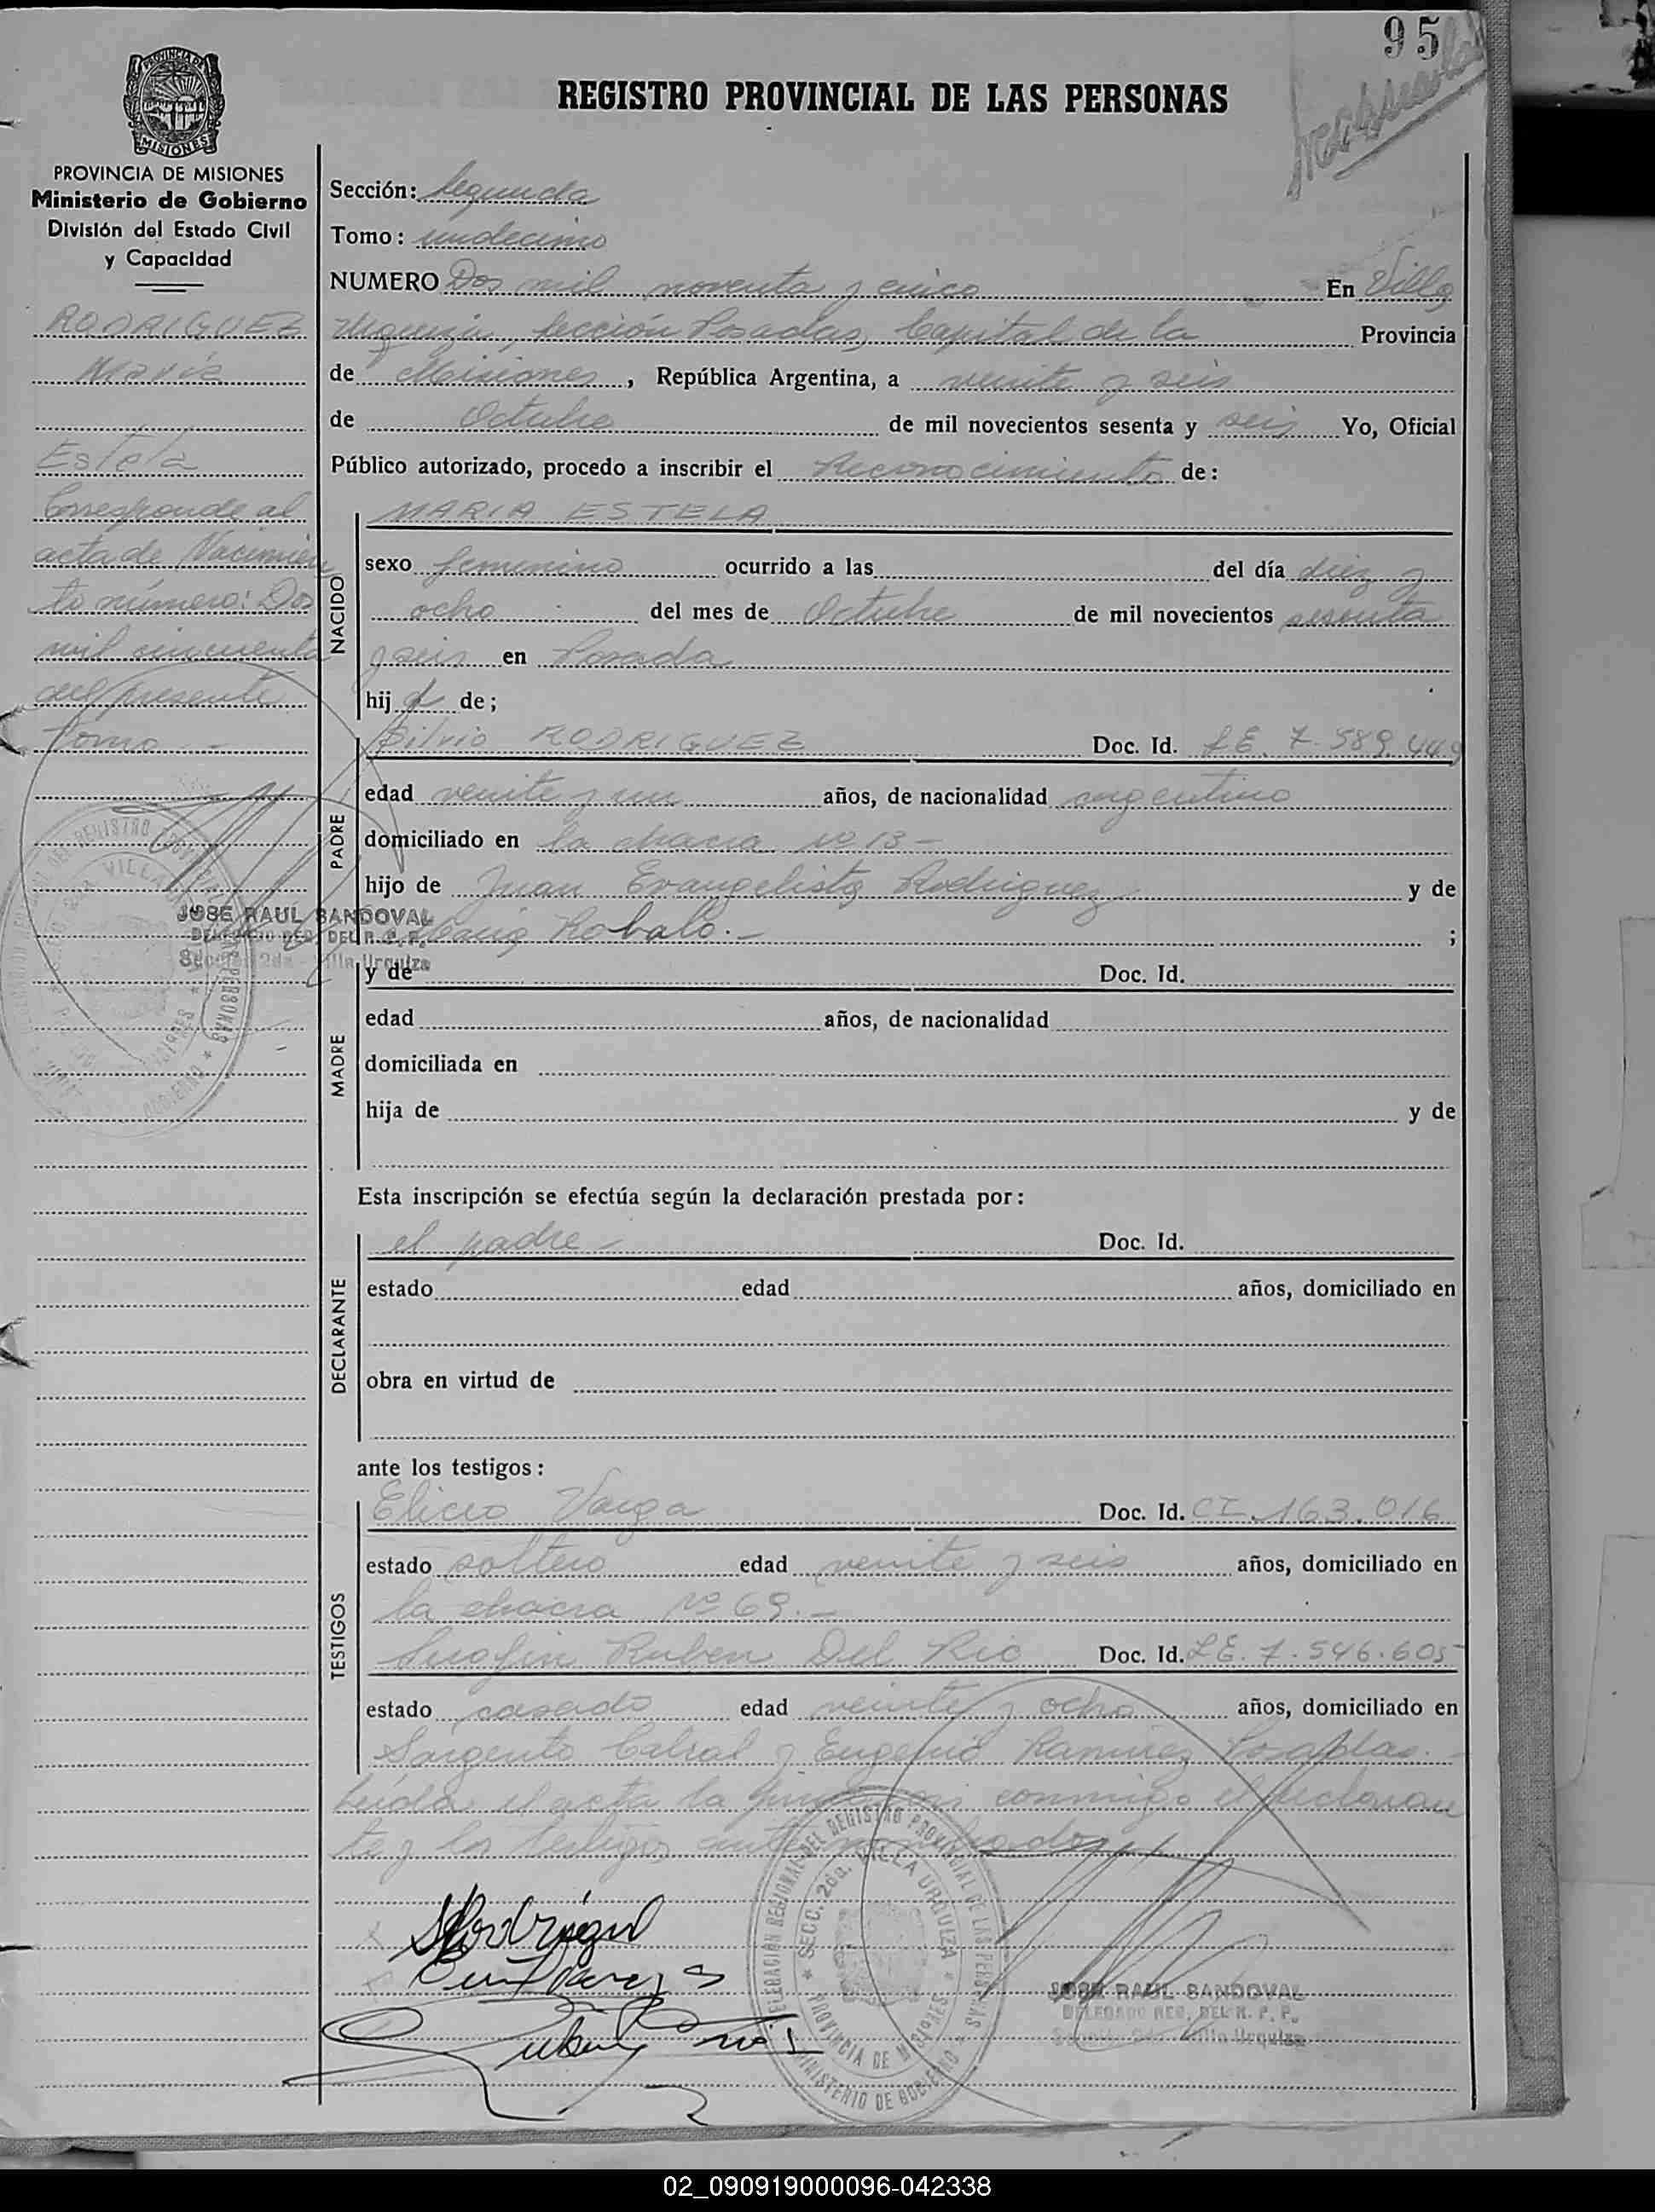 95
REGISTRO PROVINCIAL DE LAS PERSONAS
PROVINCIA DE MISIONES
PROVINCIA DE MISIONES
Ministerio de Gobierno
División del Estado Civil
y Capacidad
RODRIGUEZ
María
Estela
Corresponde al
acta de Nacimien
to número: Dos
mil cincuenta
del presente
tomo -
JOSE RAUL SANDOVAL
DELEGADO REG. DEL R. P. P.
Sección 2da - Villa Urquiza
Sección: Segunda
Tomo: undecimo
NUMERO Dos mil noventa y cinco En Villa
Urquiza, Sección Posadas, Capital de la Provincia
de Misiones, República Argentina, a veinte y seis
de Octubre de mil novecientos sesenta y seis Yo, Oficial
Público autorizado, procedo a inscribir el Reconocimiento de:
NACIDO
MARIA ESTELA
sexo femenino ocurrido a las del día diez y
ocho del mes de Octubre de mil novecientos sesenta
y seis en Posada
hij a de;
PADRE
Silvio RODRIGUEZ Doc. Id. LE. 7.589.449
edad veinte y un años, de nacionalidad argentino
domiciliado en la chacra nº 13 -
hijo de Juan Evangelista Rodriguez y de
María Robalo. - ;
MADRE
y de Doc. Id.
edad años, de nacionalidad
domiciliada en
hija de y de
Esta inscripción se efectúa según la declaración prestada por:
DECLARANTE
el padre - Doc. Id.
estado edad años, domiciliado en
obra en virtud de
ante los testigos:
TESTIGOS
Eliceo Varga Doc. Id. CI. 163.016
estado soltero edad veinte y seis años, domiciliado en
la chacra nº 69. -
Serafin Ruben Del Rio Doc. Id. LE. 7.546.605
estado casado edad veinte y ocho años, domiciliado en
Sargento Cabral y Eugenio Ramirez Posadas. -
Leida el acta la firman conmigo el declaran
te y los testigos antes nombrados
DELEGACIÓN REGIONAL DEL REGISTRO PROVINCIAL DE LAS PERSONAS
SECC. 2da. VILLA URQUIZA
PROVINCIA DE MISIONES
MINISTERIO DE GOBIERNO
JOSE RAUL SANDOVAL
DELEGADO REG. DEL R. P. P.
Sección 2da - Villa Urquiza
02_090919000096-042338